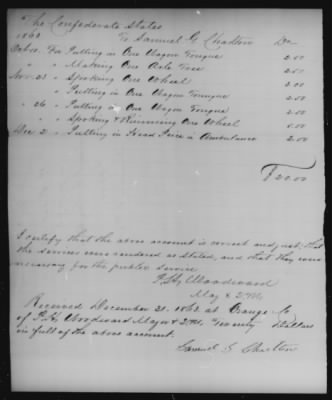 The Confederate States
1863 To Samuel G. Chelton Dr
Oct 10 For Putting in One Wagon Tongue 2.00
" " Making One Axle Tree 2.50
Nov 23 " Spoking One Wheel 5.00
" Putting in One Wagon Tounge 2.00
" 26 " Putting in One Wagon Tongue 2.00
" Spoking & Running One Wheel 5.00
Dec 2 " Putting in Piece in Ambulance 2.00
$20.00
I certify that the above account is correct and just; that
the services were rendered as stated, and that they were
necessary for the public service
P. H. Woodward
Maj & Q.M.
Received December 21. 1863 at Orange Co
of P. H. Woodward Major & Q.M. Twenty Dollars
in full of the above account.
Samuel G Chelton